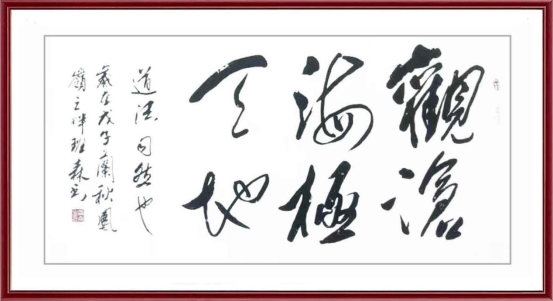 觀滄
海極
天地
道法自然也
歲在戊子之蘭秋鳳
嶺之伴森書